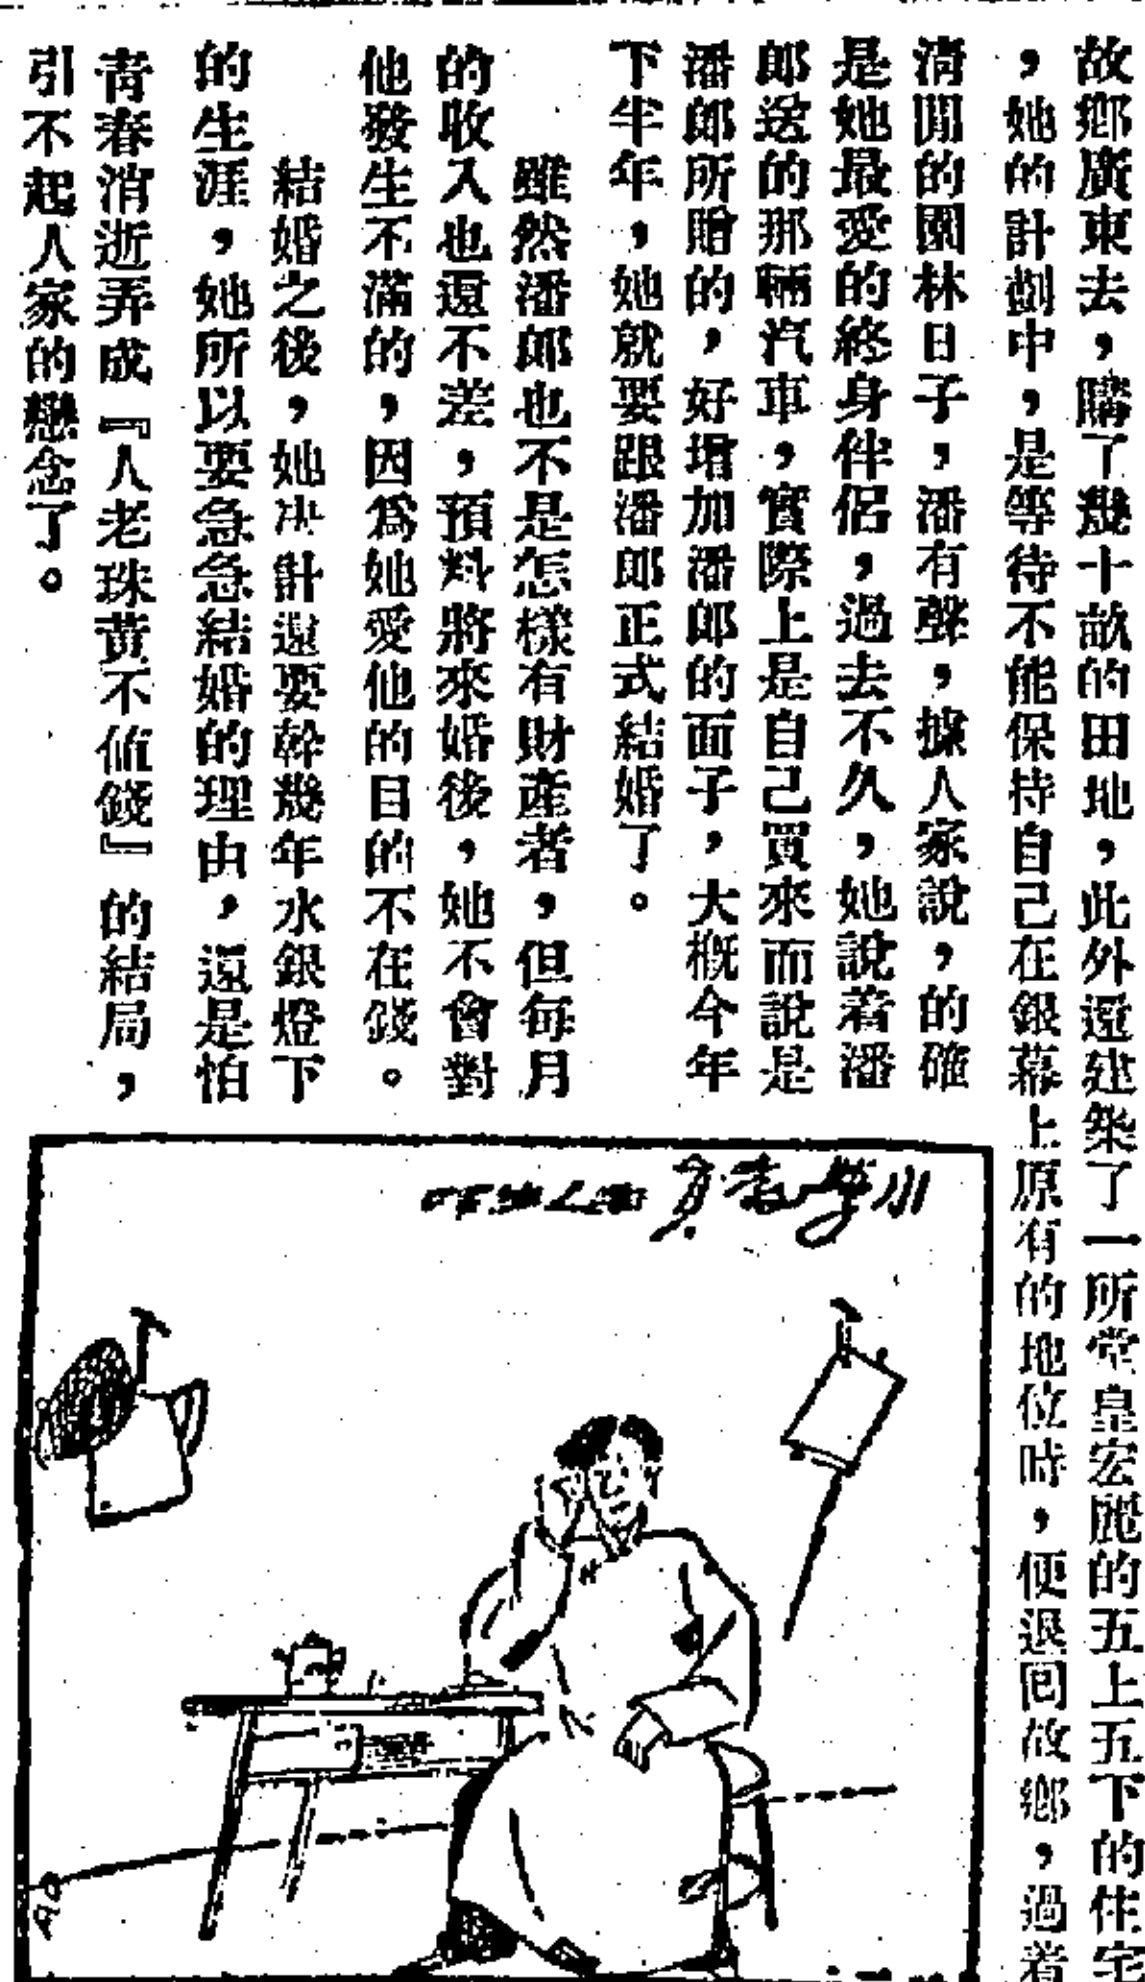 故鄉廣東去，購了幾十畝的田地，此外還建築了一所堂皇宏麗的五上五下的住宅
，她的計劃中，是等待不能保持自己在銀幕上原有的地位時，便退回故鄉，過着
清閒的園林日子，潘有聲，據人家說，的確
是她最愛的終身伴侶，過去不久，她說着潘
郎送的那輛汽車，實際上是自己買來而說是
潘郎所贈的，好增加潘郎的面子，大概今年
下半年，她就要跟潘郎正式結婚了。
雖然潘郎也不是怎樣有財產者，但每月
的收入也還不差，預料將來婚後，她不會對
他發生不滿的，因爲她愛他的目的不在錢。
結婚之後，她决計還要幹幾年水銀燈下
的生涯，她所以要急急結婚的理由，還是怕
靑春消逝弄成『人老珠黃不值錢』的結局，
引不起人家的戀念了。
小學教員